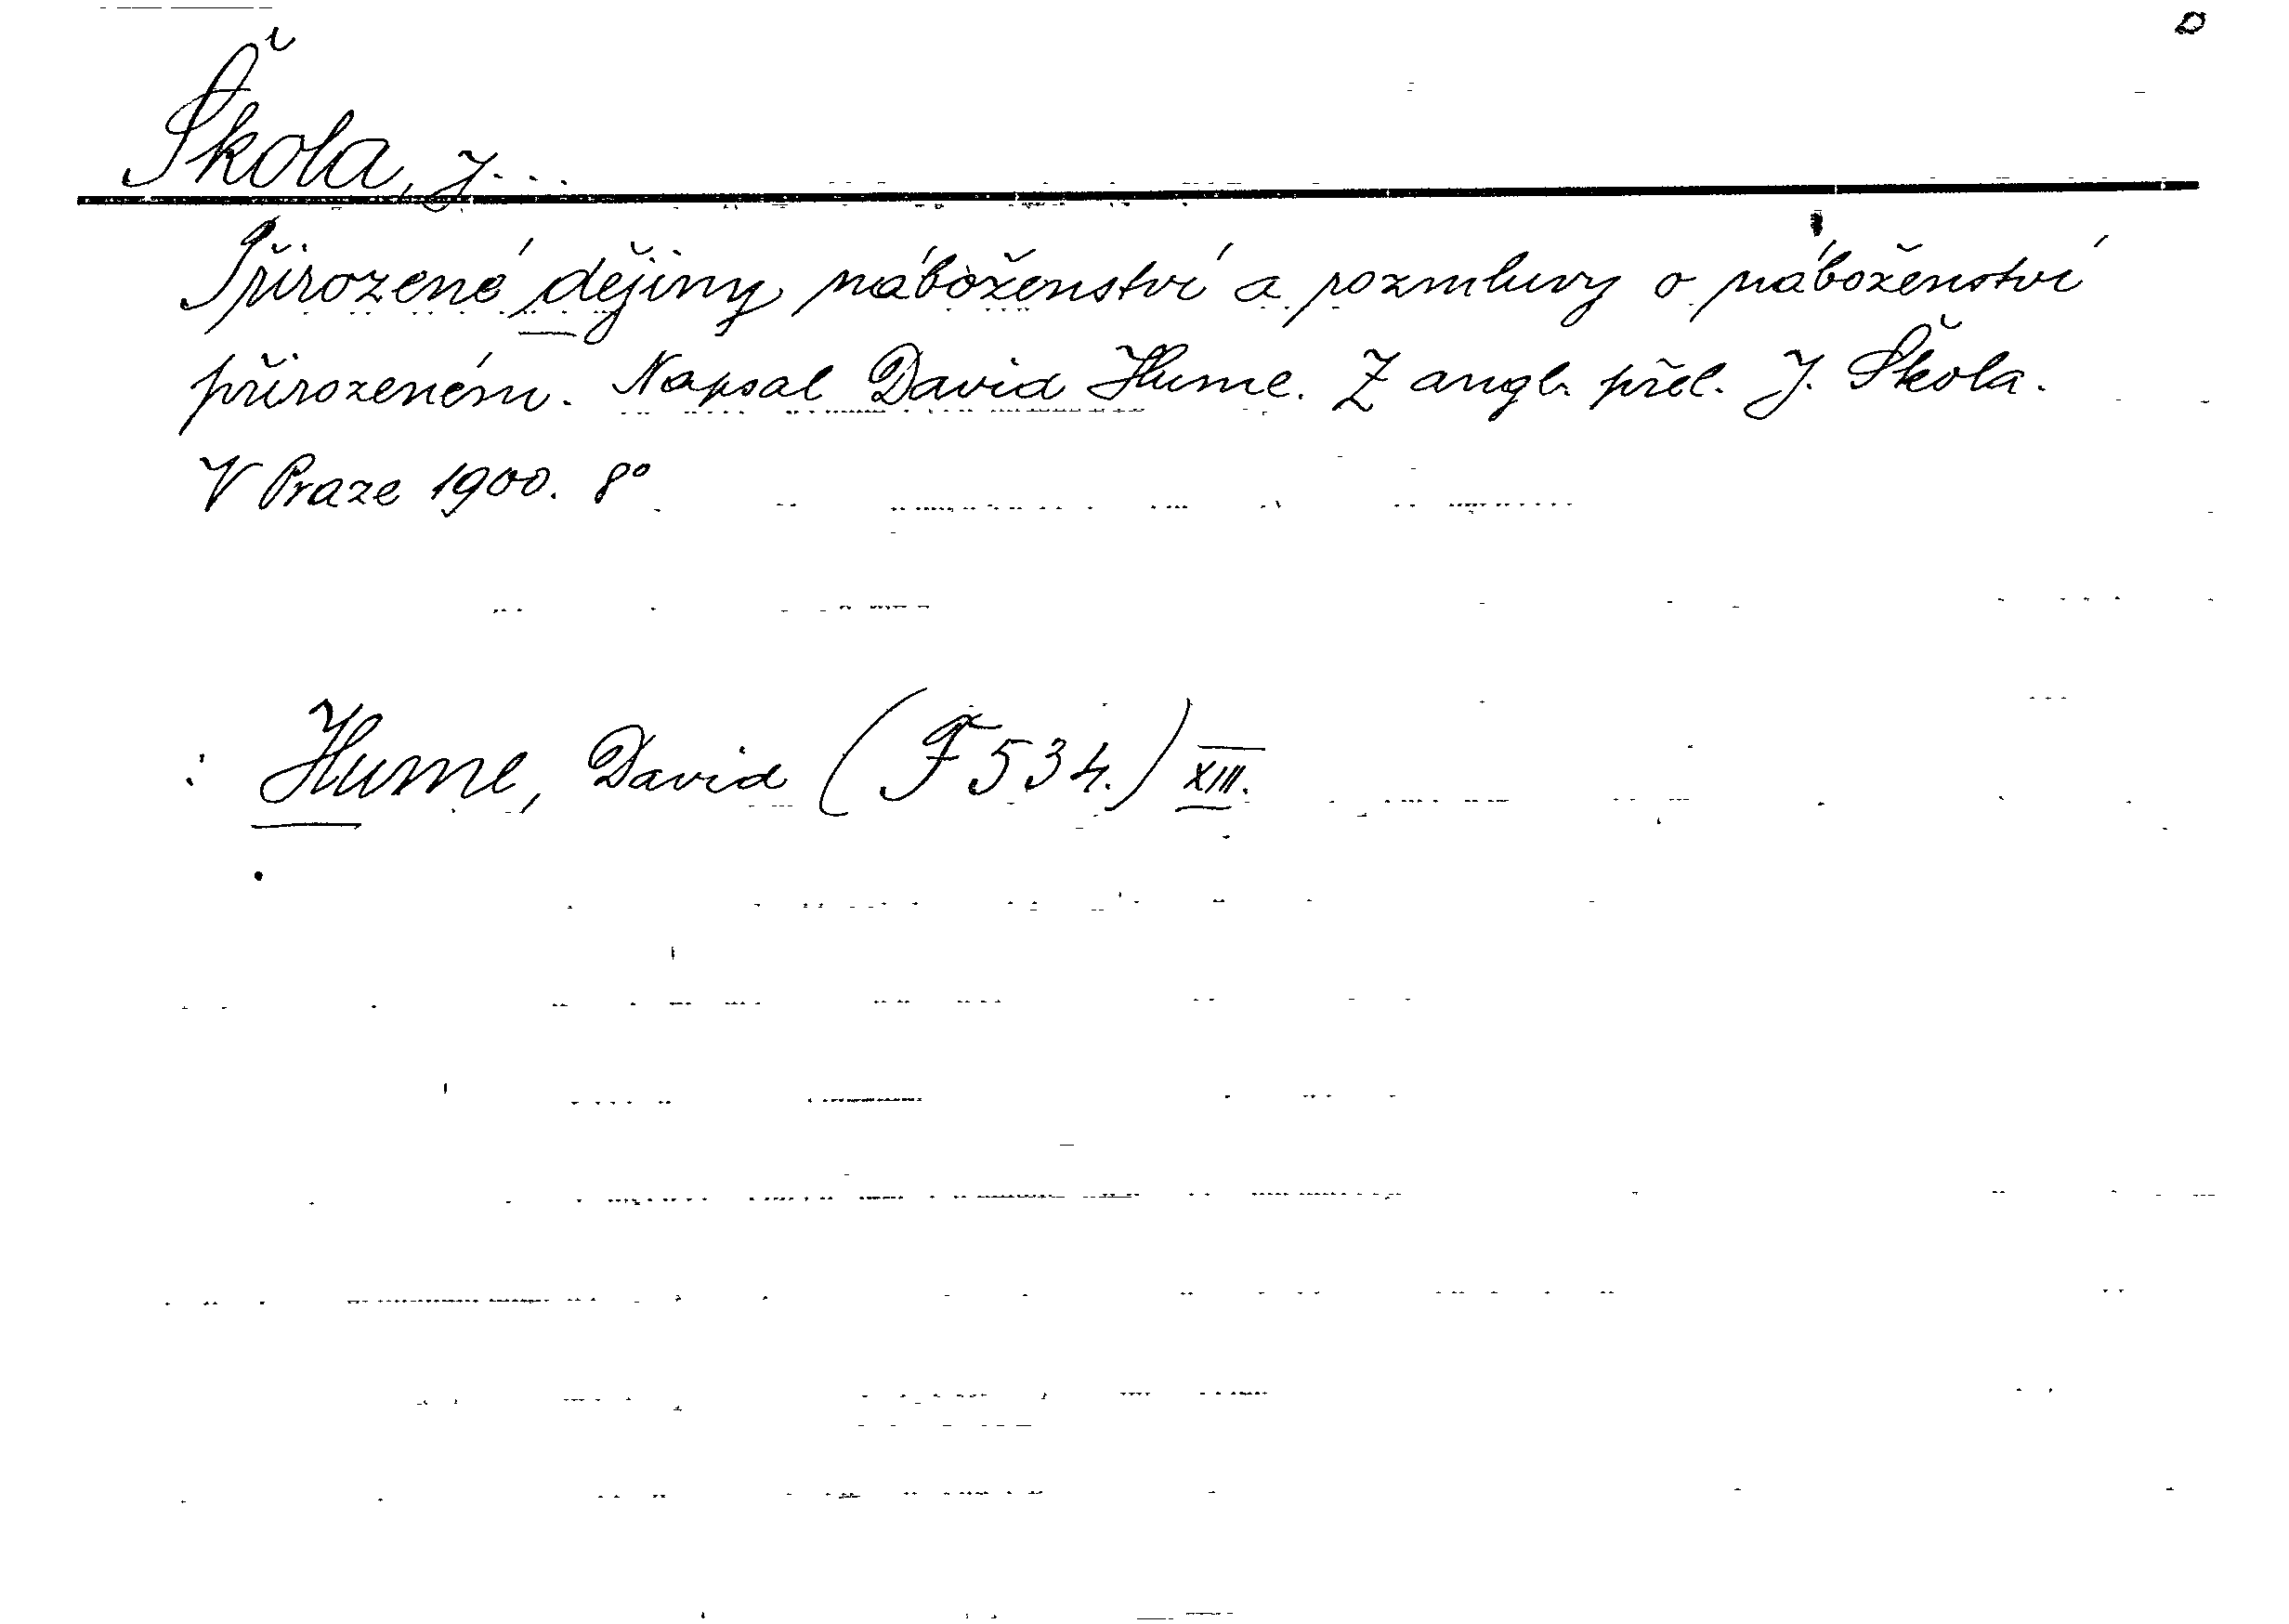 Škola, J...
Přirozené dějiny náboženství a rozmluvy o náboženství
přirozeném. Napsal David Hume. Z angl. přel. J. Škola.
V Praze 1900. 8°
: Hume, David (F 534.) XIII.